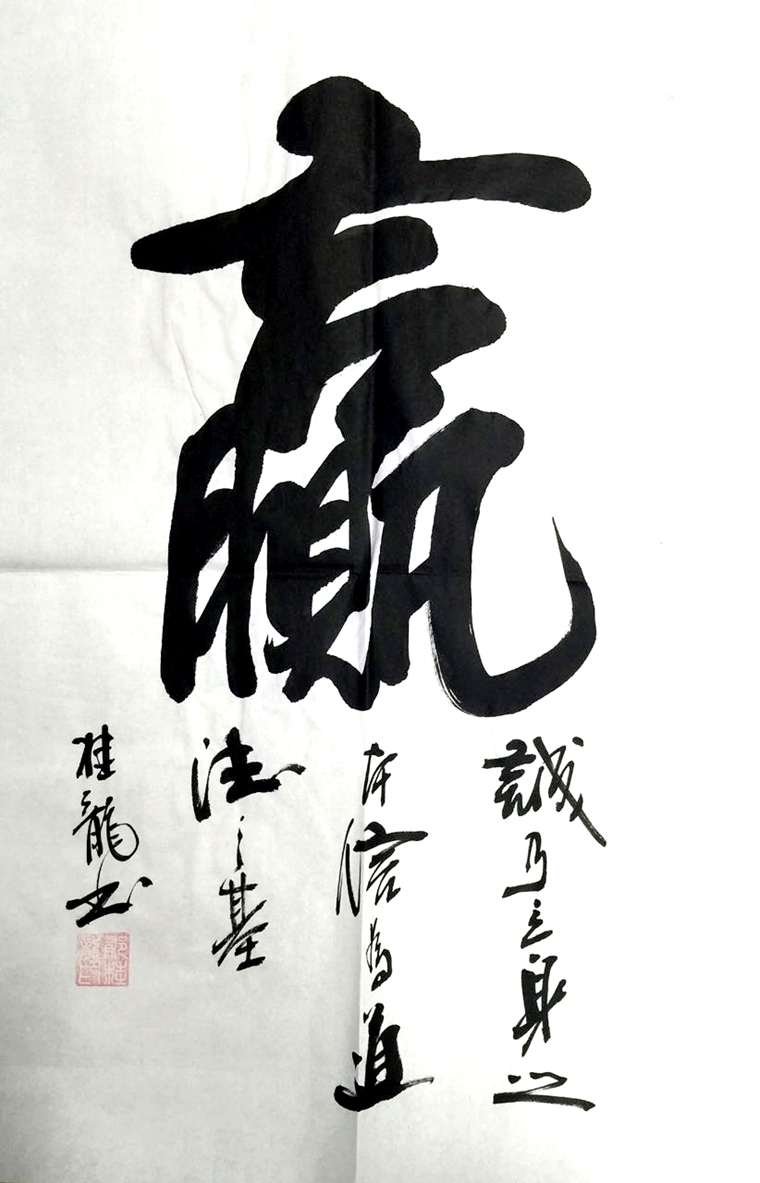 赢
誠乃立身之
本信為道
德之基
桂龍书